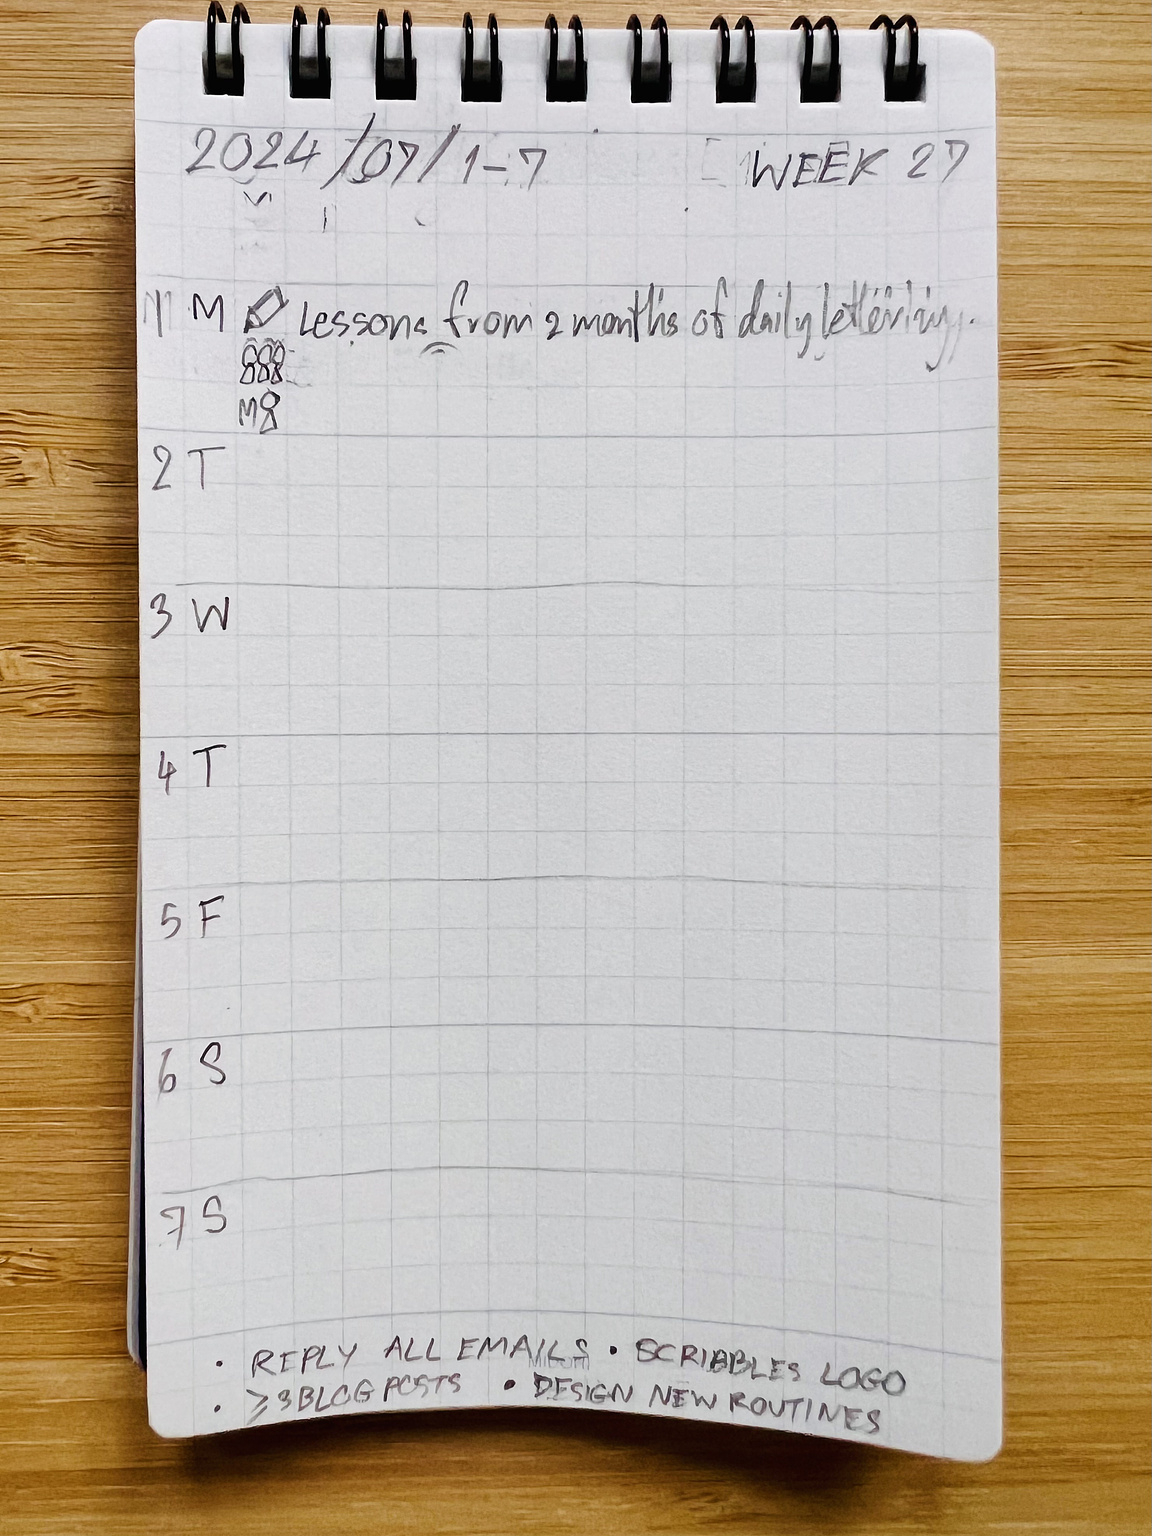 2024/07/1-7 WEEK 27
1 M Lessons from 2 months of daily lettering.
888
M8
2 T
3 W
4 T
5 F
6 S
7 S
• REPLY ALL EMAILS • SCRIBBLES LOGO
• ≥3 BLOG POSTS • DESIGN NEW ROUTINES